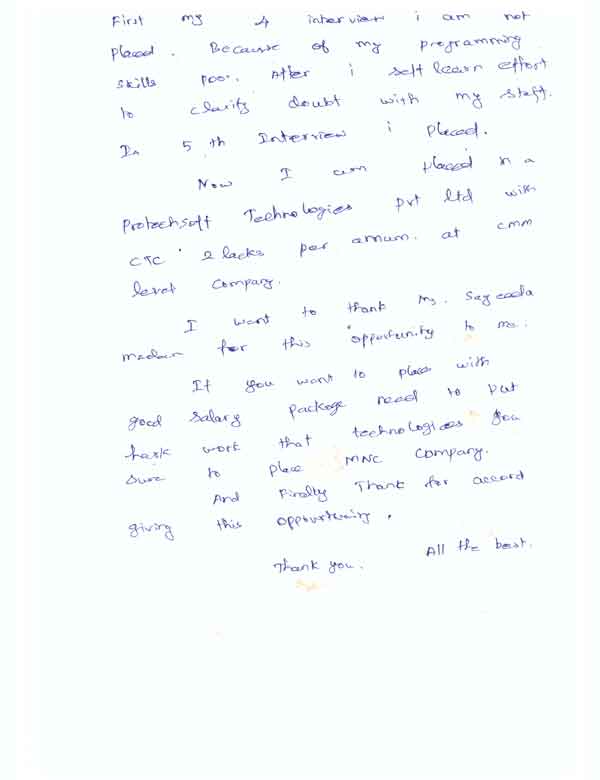 First my 4 interview i am not
placed. Because of my programming
skills poor. After i self learn effort
to clarify doubt with my staff.
In 5 th Interview i placed.
Now I am placed in a
Protechsoft Technologies pvt ltd with
CTC 2 lacks per annum. at cmm
level company.
I want to thank Ms. Sayeeda
madam for this opportunity to me.
If you want to place with
good salary package need to put
hask work that technologies you
sure to place MNC Company.
And Finally Thank for accord
giving this opportunity.
All the best.
Thank you.